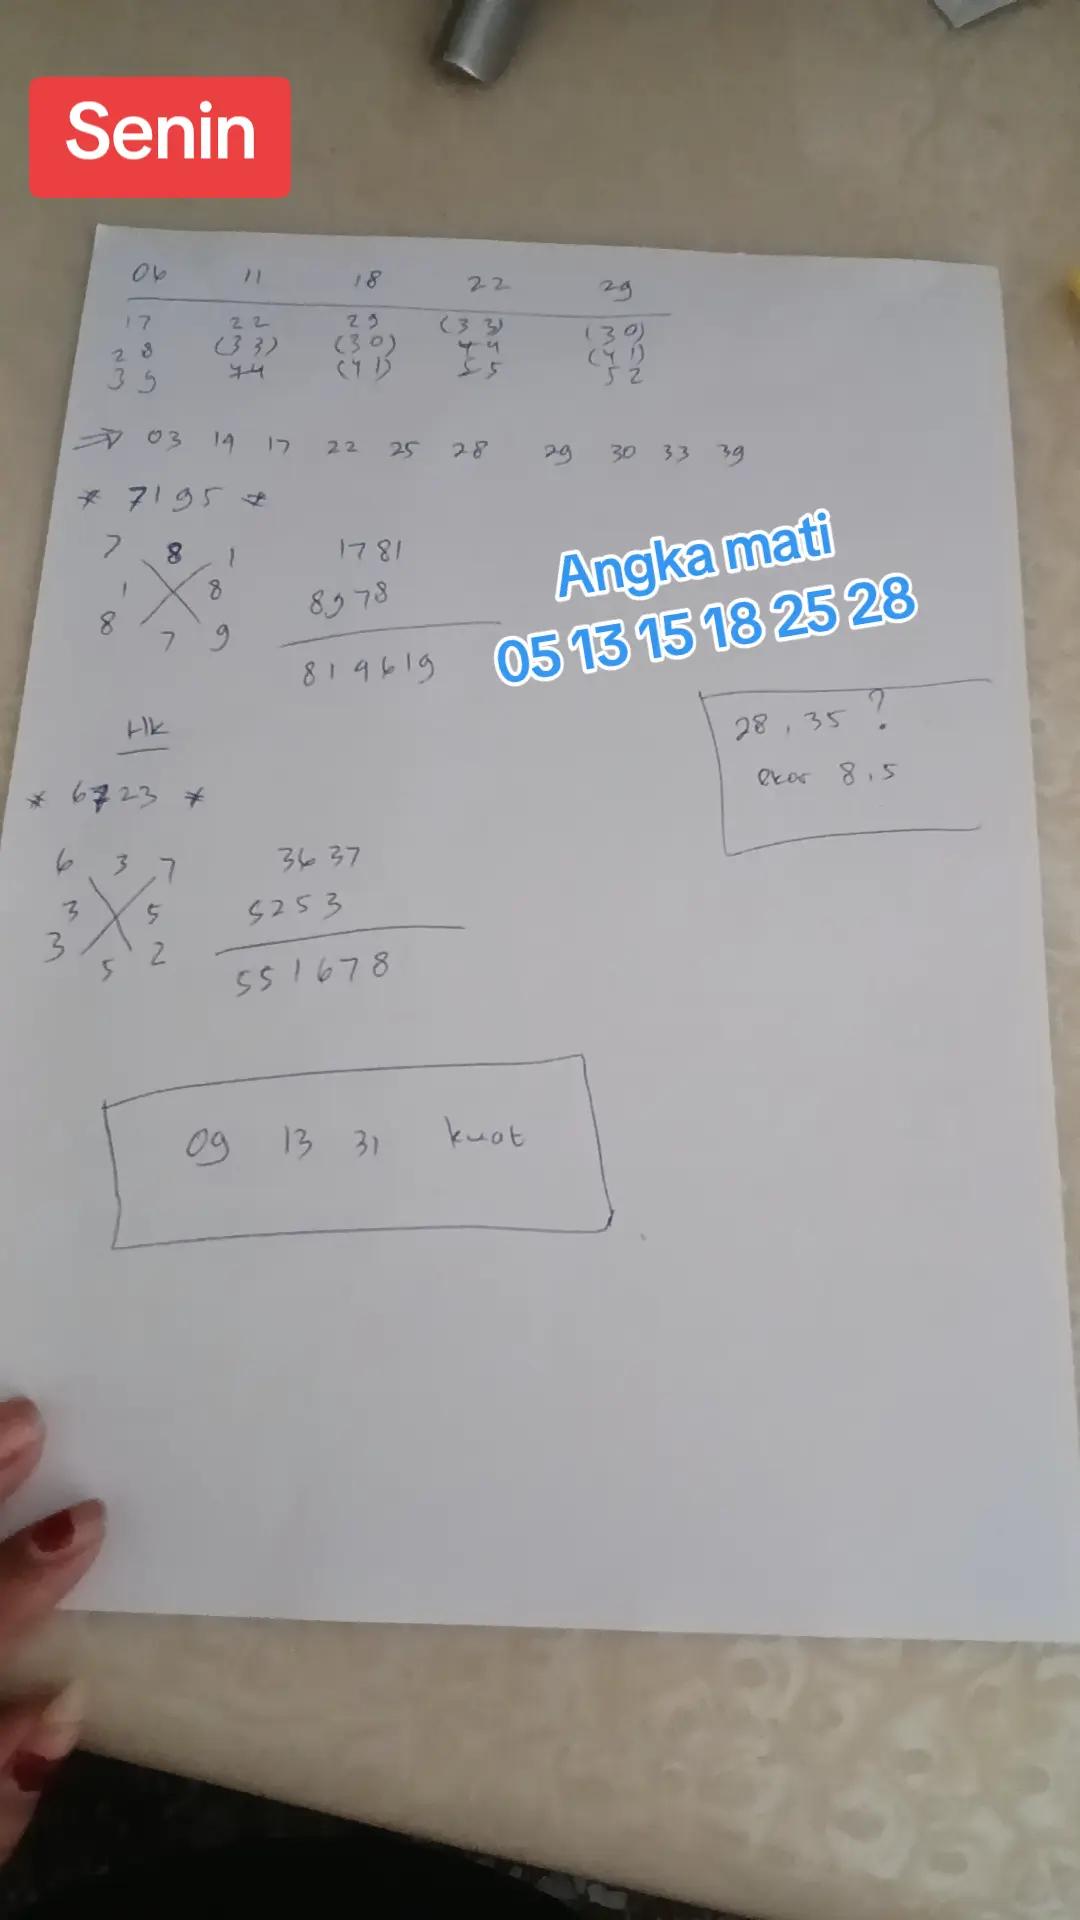 Senin
06 11 18 22 29
17 22 29 (33) (30)
28 (33) (30) 44 (41)
39 44 (41) 55 52
⇒ 03 19 17 22 25 28 29 30 33 39
* 7195 *
7 8 1 1781
1 8 8978
8 7 9
819619
Angka mati
05 13 15 18 25 28
HK
28, 35 ?
ekor 8.5
* 6723 *
6 3 7 3637
3 5 5253
3 5 2
551678
09 13 31 kuat